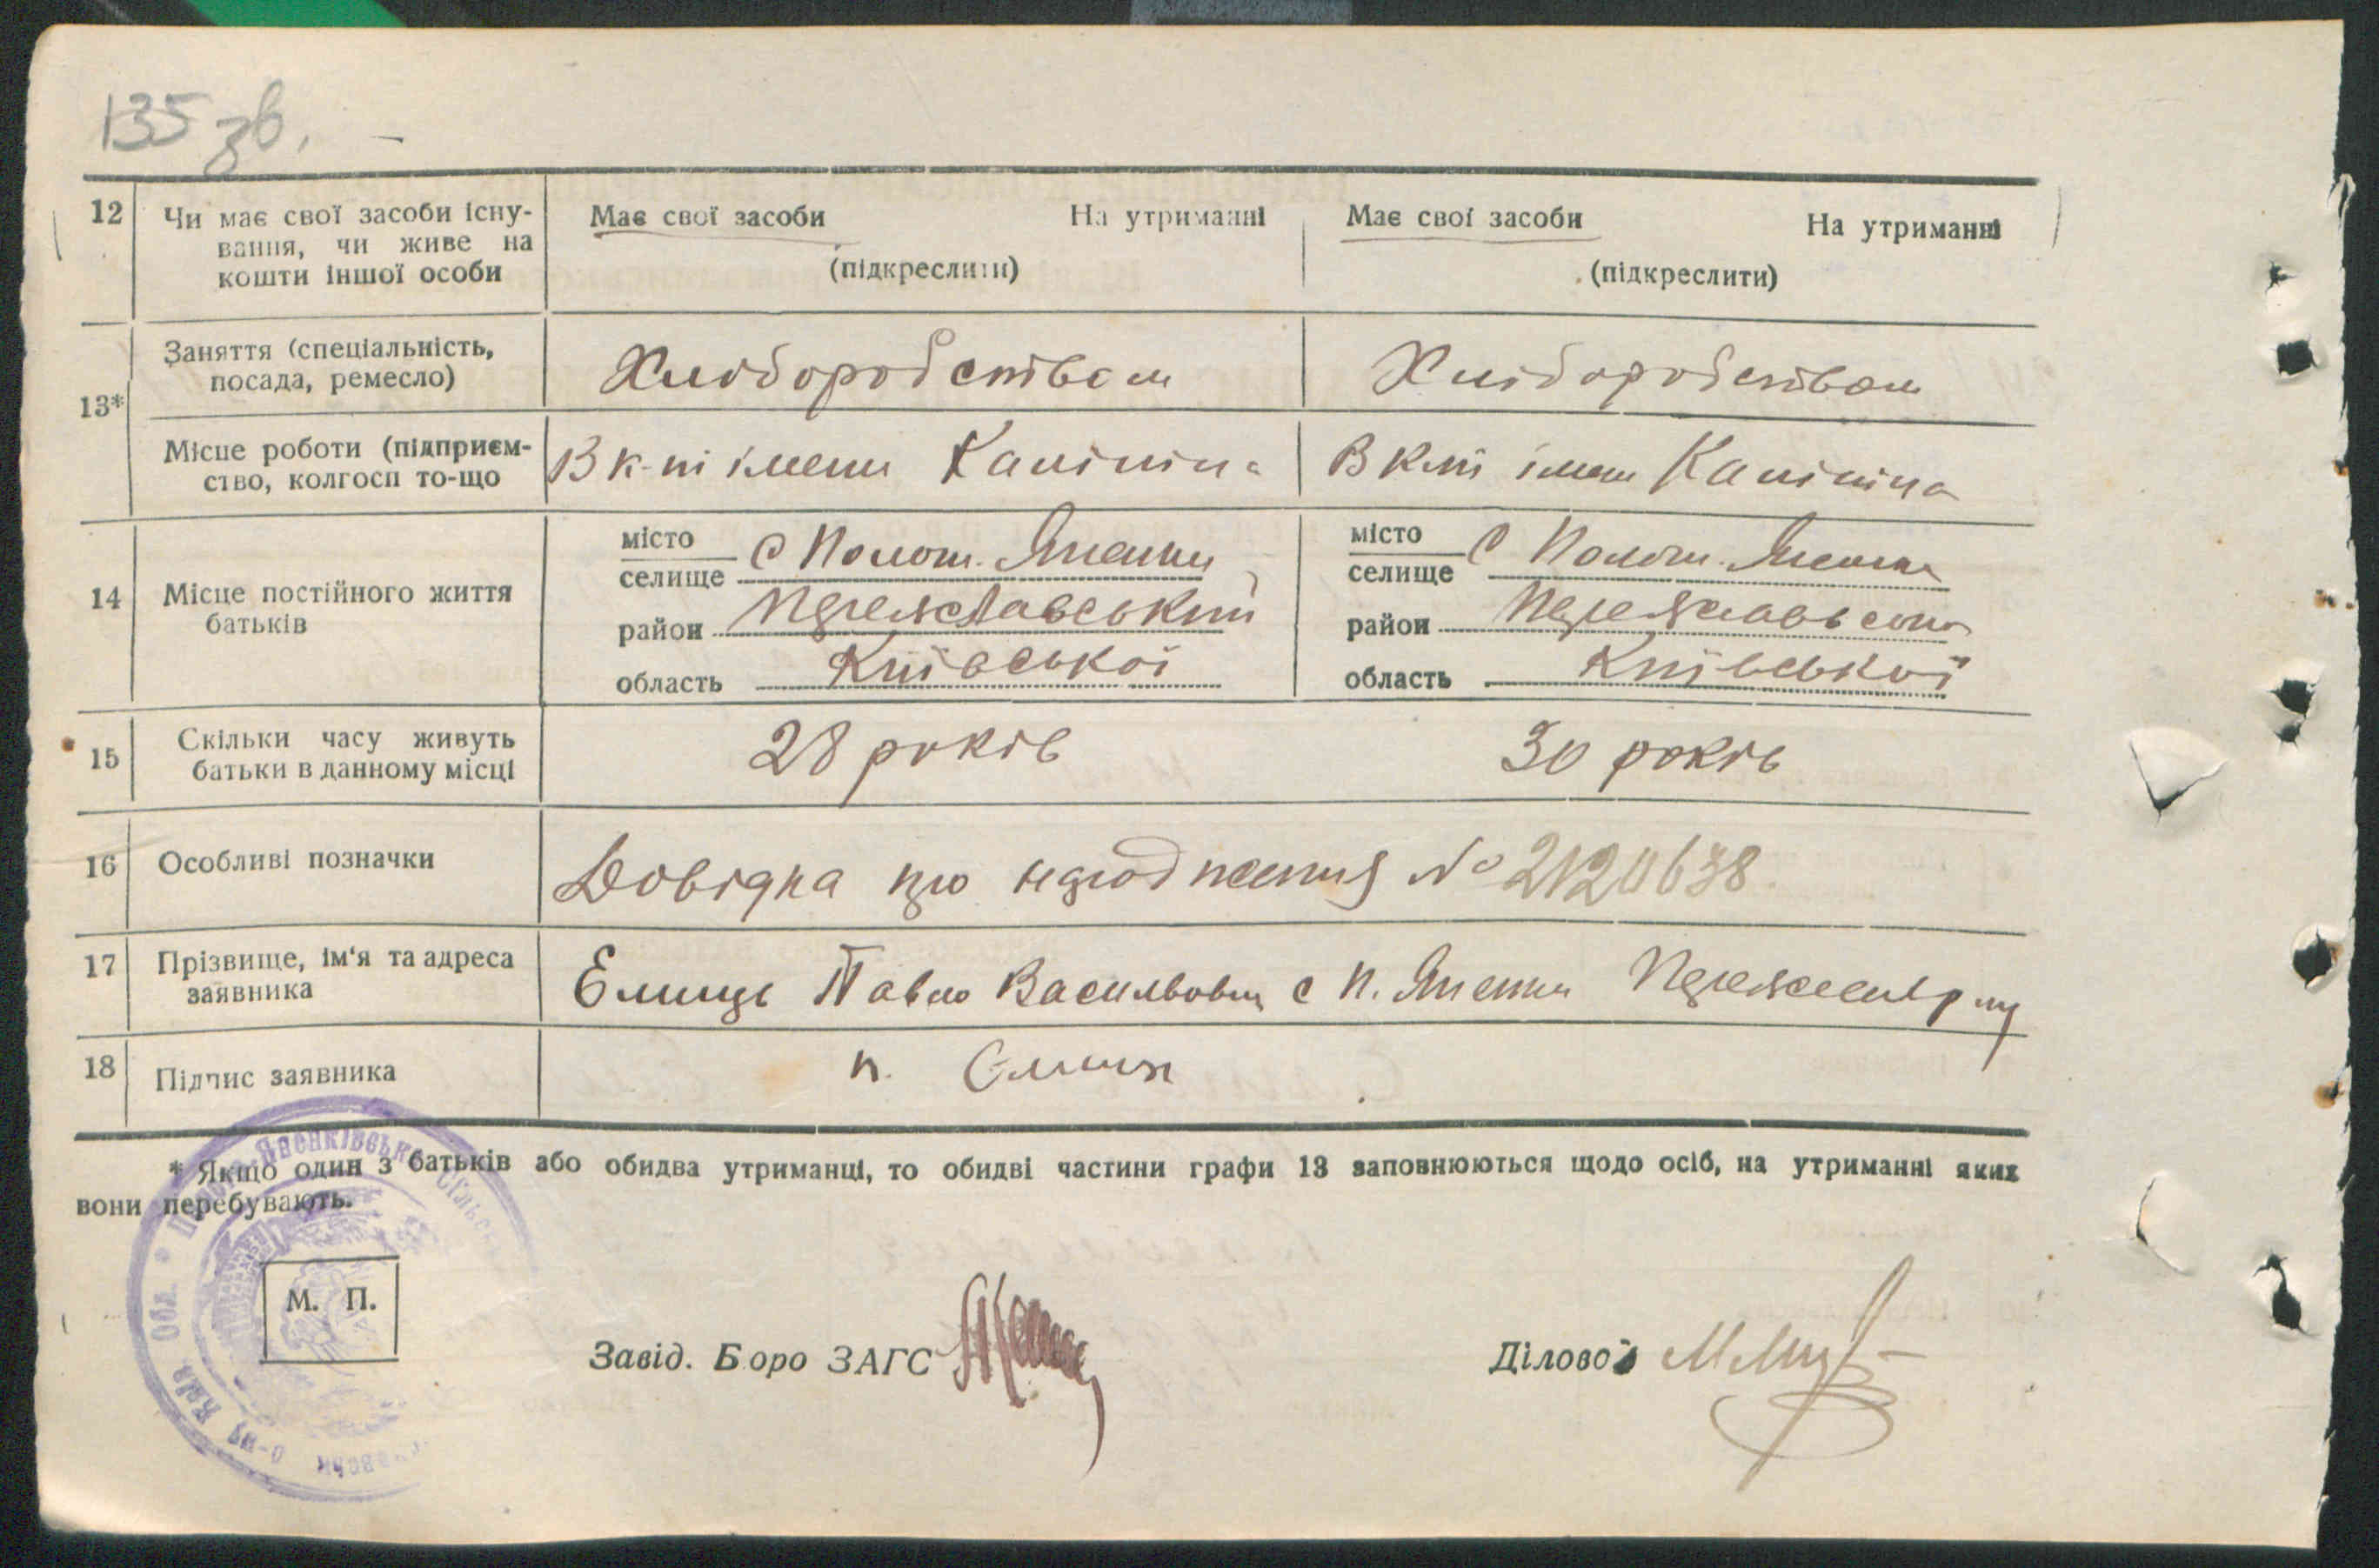 135 зв.
12
Чи має свої засоби існу-
вання, чи живе на
кошти іншої особи
Має свої засоби На утриманні
(підкреслити)
Має свої засоби На утриманні
(підкреслити)
13*
Заняття (спеціальність,
посада, ремесло)
Хліборобством
Хліборобством
Місце роботи (підприєм-
ство, колгосп то-що
В к-пі імени Калініна
В к-пі імени Калініна
14
Місце постійного життя
батьків
місто
селище С Полог. Яненки
район Переяславський
область Київської
місто
селище С Полог. Яненки
район Переяславський
область Київської
15
Скільки часу живуть
батьки в данному місці
28 років
30 років
16
Особливі позначки
Довідка про народження № 2120638
17
Прізвище, ім'я та адреса
заявника
Емець Павло Васильович с П. Яненки
18
Підпис заявника
п. Емець
* Якщо один з батьків або обидва утриманці, то обидві частини графи 13 заповнюються щодо осіб, на утриманні яких
вони перебувають.
М. П.
Завід. Боро ЗАГС
Діловод